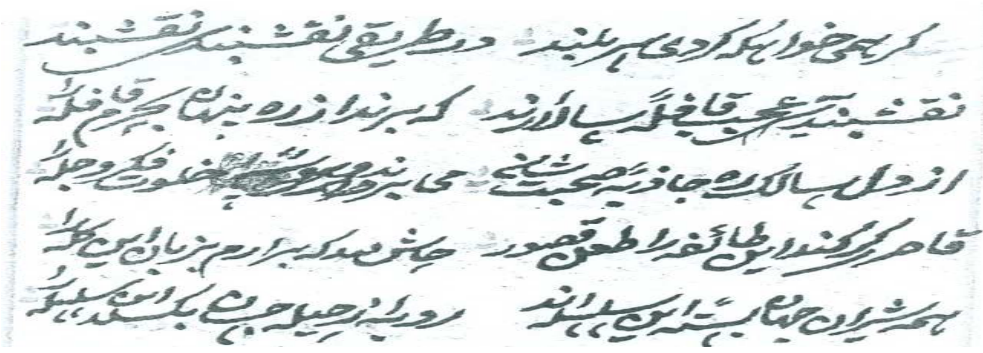 گر همی خواهی که گردی سر بلند در طریق نقشبندی نقشبند
نقشبندیه عجب قافله سالارند که برند از ره پنهان به حرم قافله را
از دل سالک ره جاذبه صحبت شان می برد وسوسه خلوت و فکر چله را
قاصر گر کند این طائفه را طعن قصور حاش لله که برارم بزبان این گله را
همه شیران جهان بسته این سلسله اند روبه از حیله چسان بگسلد این سلسله را